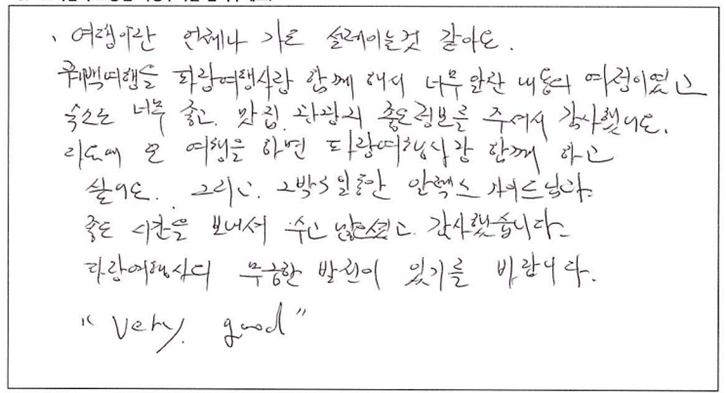 여행이란 언제나 가도 설레이는것 같아요.
퀘백여행을 파랑여행사랑 함께 해서 너무 알찬 내용의 여정이였고
숙소도 너무 좋고. 맛집. 관광지 좋은정보를 주셔서 감사했어요.
다음에 또 여행을 하면 파랑여행사랑 함께 하고
싶어요. 그리고. 2박3일동안 알렉스 가이드님과
좋은 시간을 보내서 수고 많으셨고. 감사했습니다.
파랑여행사의 무궁한 발전이 있기를 바랍니다.
"very. good"